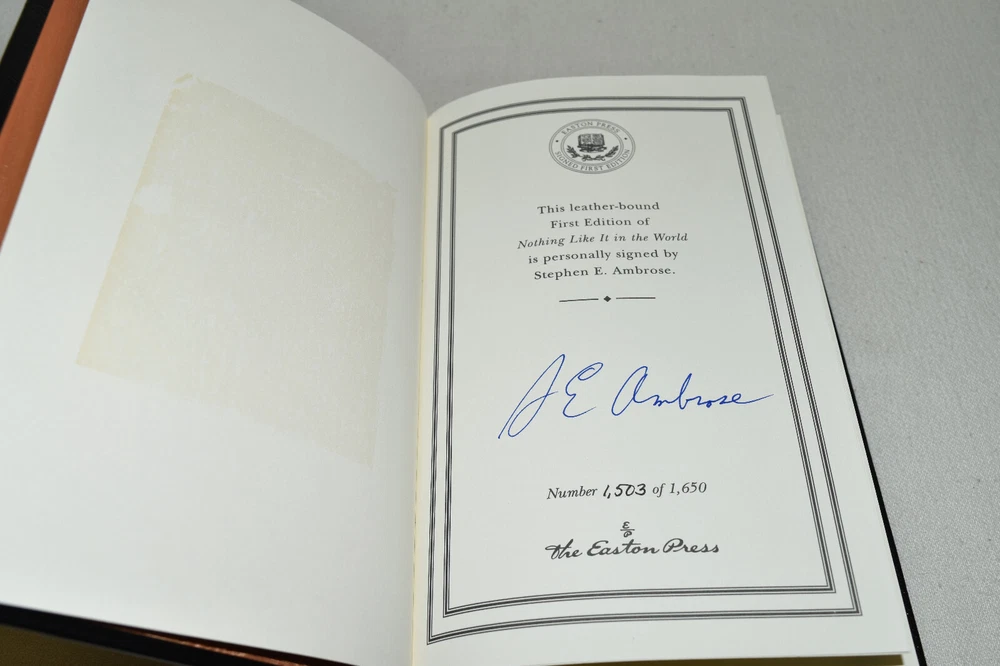 EASTON PRESS
SIGNED FIRST EDITION
This leather-bound
First Edition of
Nothing Like It in the World
is personally signed by
Stephen E. Ambrose.
S E Ambrose
Number 1,503 of 1,650
E
P
the Easton Press